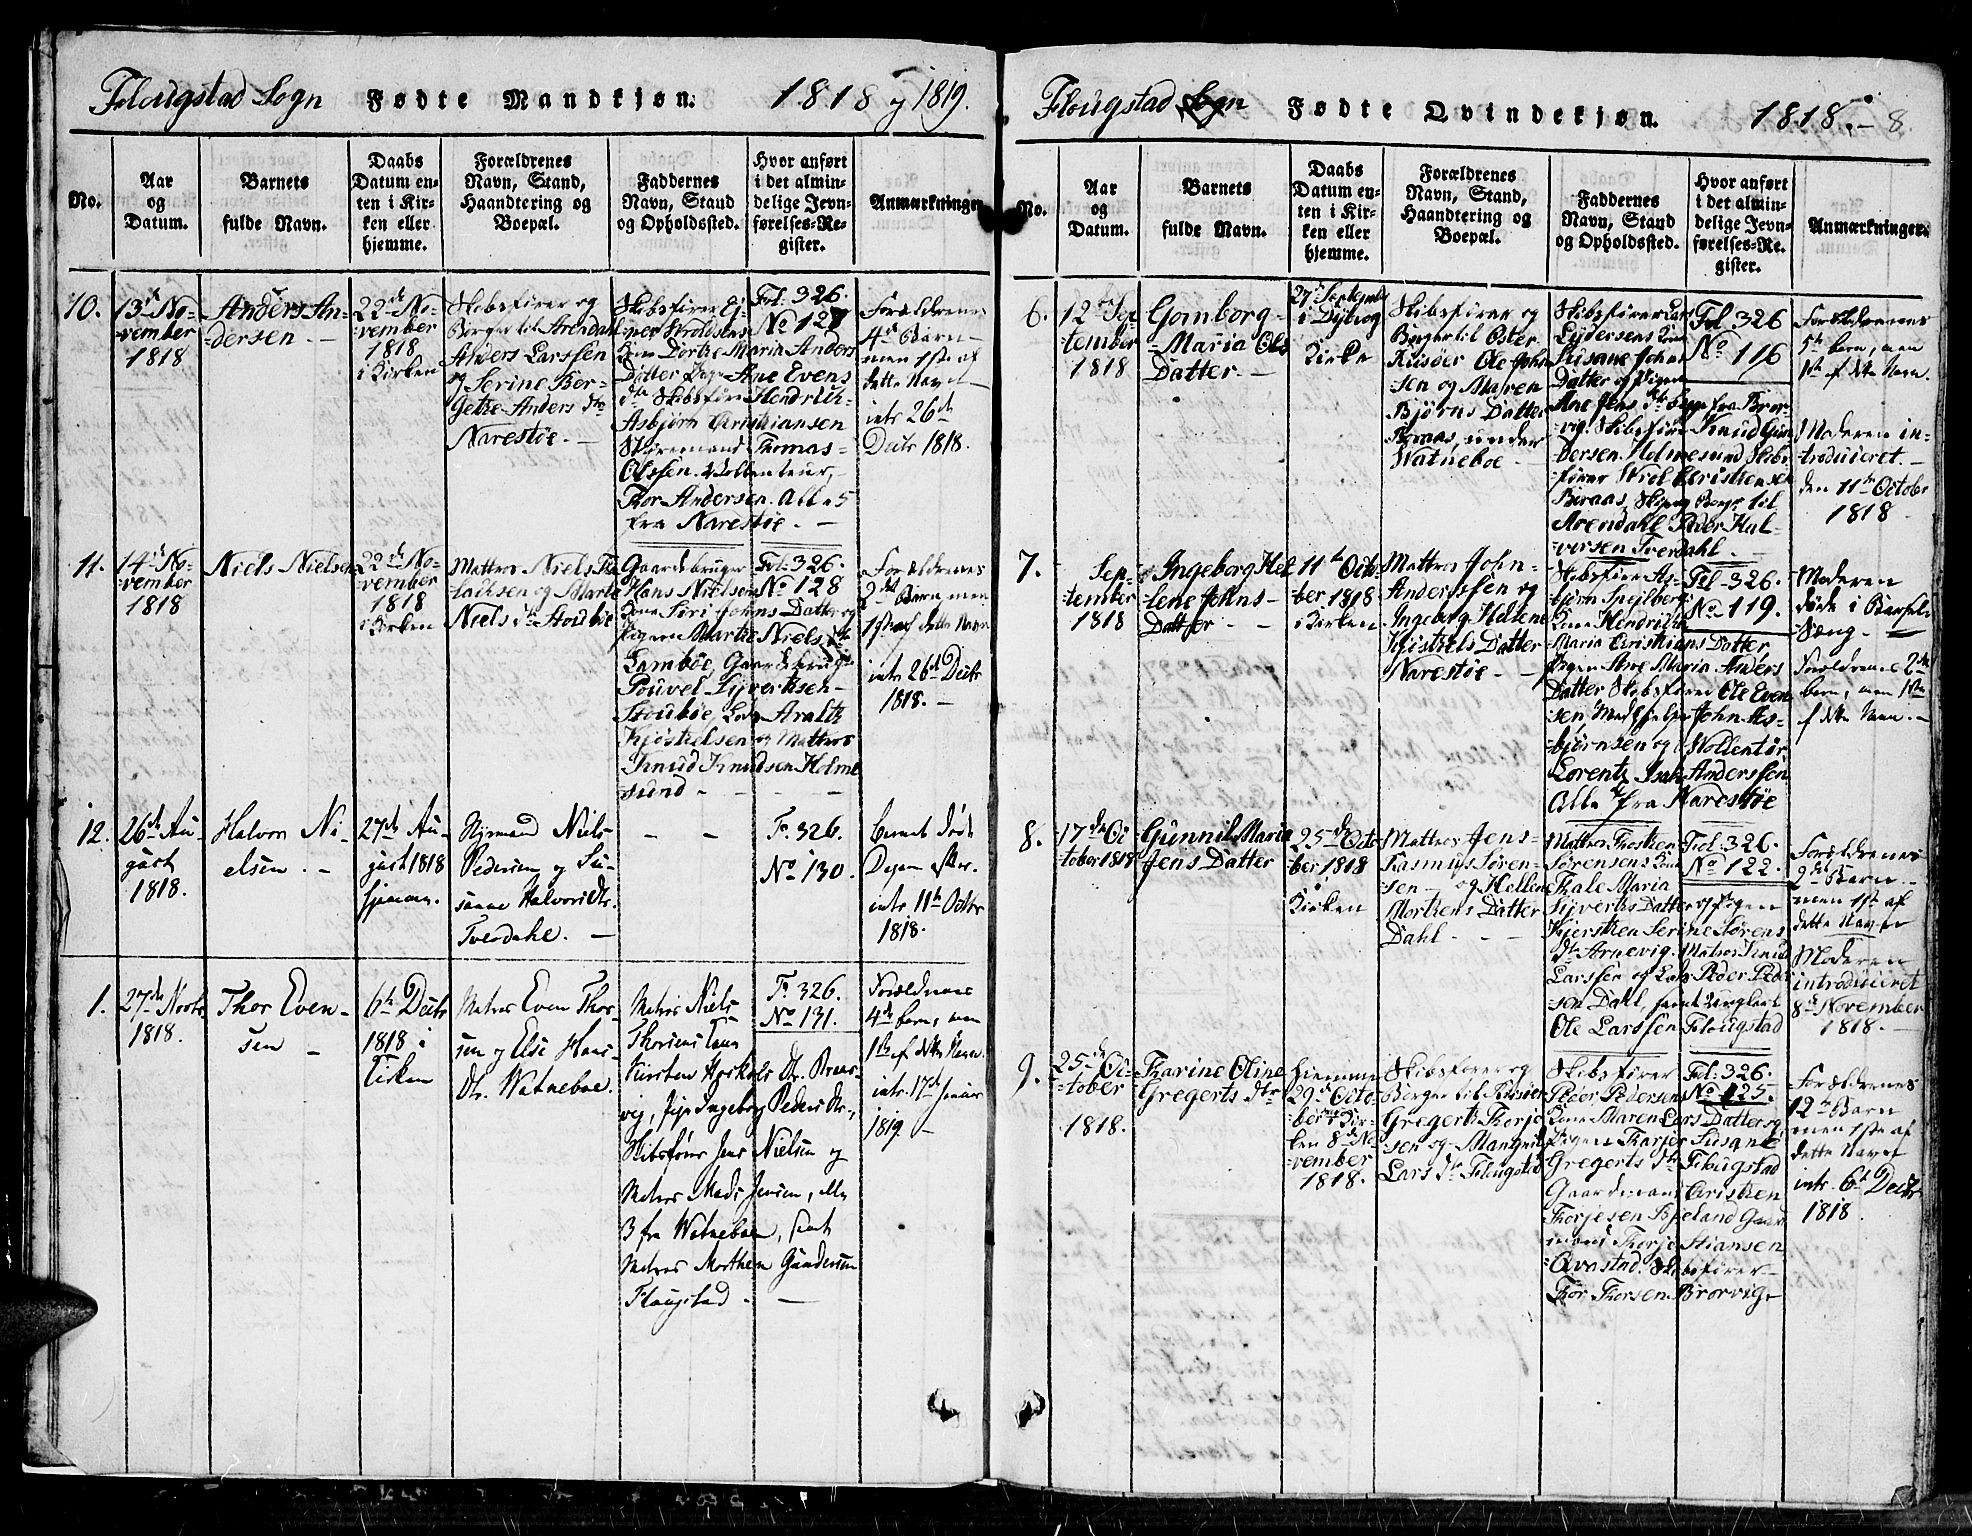 Flougstad Sogn Fødte Mandkjøn. 1818 og 1819.
No.
Aar
og
Datum.
Barnets
fulde Navn.
Daabs
Datum en-
ten i Kir-
ken eller
hjemme.
Forældrenes
Navn, Stand,
Haandtering og
Boepæl.
Faddernes
Navn, Stand
og Opholdssted.
Hvor anført
i det almin-
delige Jevn-
førelses-Re-
gister.
Anmærkninger
10.
13de No-
vember
1818
Anders An-
dersen. -
22de No-
vember
1818
i Kirken
Skibsfører og
Borger til Arendal
Anders Larssen
og Serine Ber-
Gethe Anders dtr
Narestøe. -
Skibsfører
Kone Dorthe Maria Anders
Datter Ane Evens
dtr Skibsfører Hendrik
Asbjørn Christiansen
Styrmand Thomas
Olssen
Thor Andersen. Alle 5
fra Narestøe. -
Fol. 326.
No 127
Forældrenes
4de Barn
men 1ste af
dette Navn
intr 26de
Decbr 1818.
11.
14de No-
vember
1818
Niels Nielsen
22de No-
vember
1818
i Kirken
Mattros Niels
og Marte
Niels dtr Stoubøe
Gaardbruger
Hans Nielsens
Kone Siri Johns Datter og
Pigen Marthe Niels dtr
Lambøe, Gaardbruger
Pouvel Syvertsen
Stoubøe, Aralth
Kjøstelsen og Mattros
Knud Knudsen Holme
sund - - -
Fol. 326.
No 128
Forældrenes
2det Barn, men
1ste af dette Navn
intr 26de Decbr
1818. -
12.
26de Au-
gust
1818.
Halvor Ni-
elsen. -
27de Au-
gust 1818
hjemme.
Styrmand Niels
Pedersen og Su-
sanne Halvors Dtr.
Tverdahl. -
- -
Fo. 326.
No 130.
Barnet døde
Dagen efter.
intr 11te Octbr
1818.
1.
27de Novbr
1818.
Thor Even-
sen -
6te Decbr
1818 i
Kirken
Matros Even Thor-
sen og Else Hans-
Dtr. Watneboe.
Matros Niels
Thorsens Kone
Kirsten Dtr. Braas-
vig, Pige Ingeborg Peders Dtr.,
Skibsfører Jens Nielsen og
Matros Mads Jensen, alle
3 fra Watneboe, samt
Matros Morthen Gundersen
Flougstad. -
Fo. 326.
No 131.
Forældrenes
4de barn, men
1ste af dette Navn.
intr. 17de Januar
1819. -
Flougstad Sogn Fødte Qvindekjøn. 1818. - 8.
No.
Aar
og
Datum.
Barnets
fulde Navn.
Daabs
Datum en-
ten i Kir-
ken eller
hjemme.
Forældrenes
Navn, Stand,
Haandtering og
Boepæl.
Faddernes
Navn, Stand
og Opholdssted.
Hvor anført
i det almin-
delige Jevn-
førelses-Re-
gister.
Anmærkninger.
6.
12te Sep-
tember
1818
Gomborg
Maria Ols
Datter. -
27de September
i Dybvog
Kirke
Skibsfører og
Borger til Øster
Riisøer Ole John-
sen og Maren
Bjørns Datter
Boraas, under
Watneboe -
Skibsfører Lars
Lydersens Kone
Susane Johns
Datter og Pigen
Ane Jens dtr Begge fra Bror-
vig. Skibsfører Knud Gun-
dersen Holmesund Skibs-
fører Niels Christensen
Boraas, Skipper Borger til
Arendahl Peder Hal-
vorsen Tverdahl. -
Fol. 326
No 116
Forældrenes
5te barn, men
1ste af dette Navn.
Moderen in-
troduceret -
den 11te October
1818
7.
Sep-
tember
1818
Ingeborg Hel-
lene Johns-
Datter - -
11te Octo-
ber 1818
i Kirken
Mattros John
Anderssen og
Ingeborg Hellene
Kjøstels Datter
Narestøe - -
Skibsfører As-
bjørn Snejlbergs
Kone Hendrikke
Maria Christians Datter
Pigen Ane Maria Anders
Datter Skibsfører Ole Even
sen, John As-
bjørnsen og Wollentør
Lorentz Isak Anderssen
Alle fra Narestøe
Fol. 326.
No 119.
Moderen
døde i Barsel-
Seng. -
Forældrene 2det
barn, men 1ste
af dette Navn. -
8.
17de Oc-
tober 1818
Gunnild Maria
Jens Datter
25de Octo-
ber 1818
i
Kirken
Mattros Jens
Rasmus Søren-
sen - og Hellene
Morthens Datter
Dahl. - - -
Mattros Thosten
Sørensens Kone
Thale Maria
Syverts Datter og Pigen
Kjersten Serine Sørens
dtr Arnevig. Matros Knud
Larssen og Lods Peder Peder
sen Dahl, samt Ungkarl
Ole Larssen Flougstad
Fol. 326.
No 122.
Forældrenes
2det Barn -
men 1ste af
dette Navn
Moderen
introduceret
8de November
1818. -
9.
25de Oc-
tober
1818.
Tharine Oline
Gregerts dtr
hjemme
29de Octo-
ber i Kir-
ken 8de No-
vember
1818.
Skibsfører og
Borger til Riisøer
Gregert Thorje-
sen og Mangnil
Lars dtr Flougstad
Skibsfører
Peder Pedersens
Kone Maren Lars Datter og
Pigen Tharje Susane
Gregerts dtr Flougstad
Gaardmand Christen
Thorjesen Gaar-
mand Thorje Stiansen
Qvastad. Skibsfører
Thor Thorsen Brorvig.
Fol. 326.
No 125.
Forældrenes
12te Barn
men 1ste af
dette Navn
intr. 6te Decbr
1818.